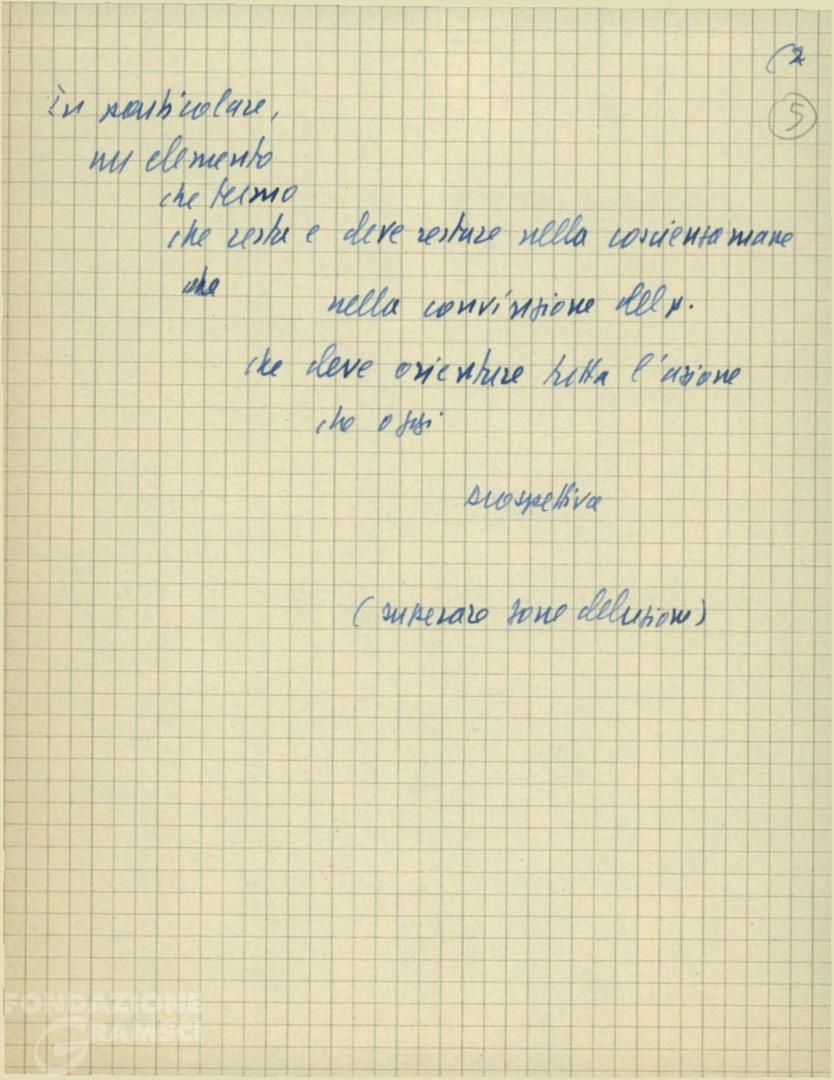 (2
5
in particolare,
un elemento
che fermo
che resta e deve restare nella coscienza mane
che
nella convinzione del p.
che deve orientare tutta l'azione
che oggi
prospettiva
(superare zone delusione)
FONDAZIONE
GRAMSCI